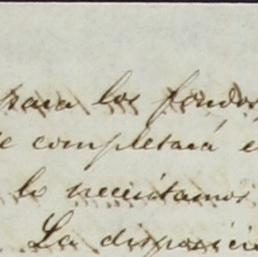 para los fondos
completará
lo necesitamos
La disposició